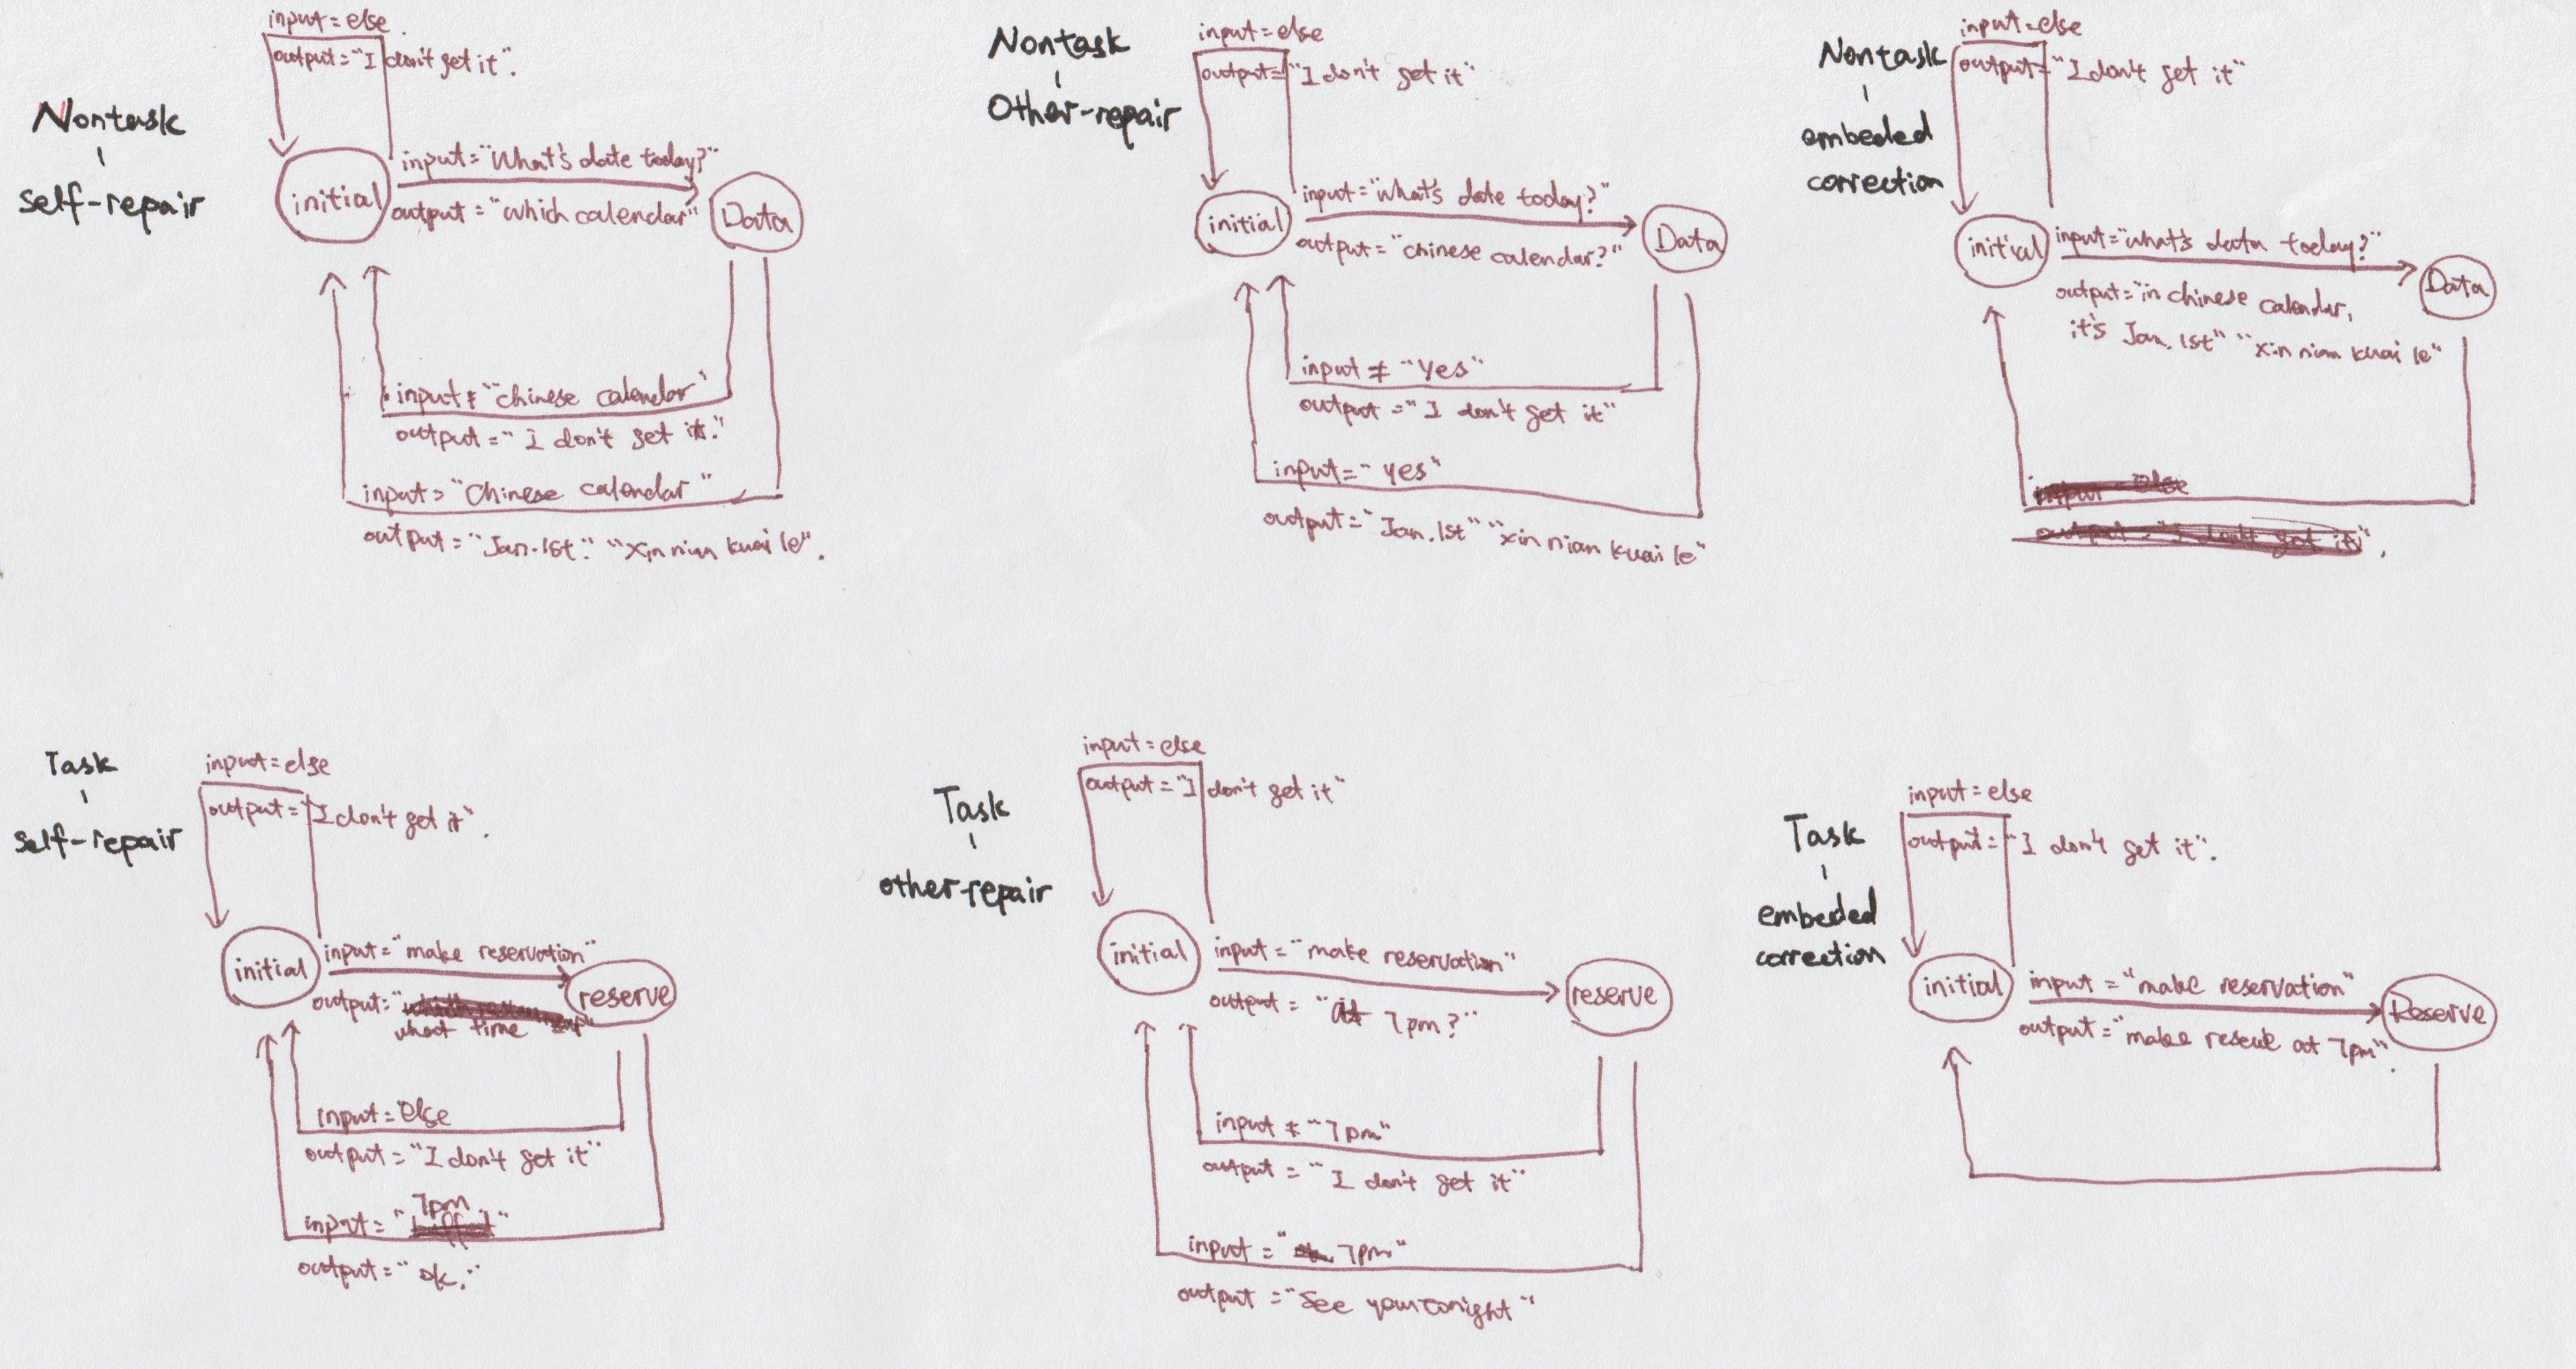 input = else
output = "I don't get it".
Nontask
-
self-repair
initial
input = "What's date today?"
output = "which calendar"
Data
input ≠ "chinese calendar"
output = "I don't get it."
input = "Chinese calendar"
output = "Jan. 1st." "xin nian kuai le".
Nontask
-
Other-repair
input = else
output = "I don't get it"
initial
input = "what's date today?"
output = "chinese calendar?"
Data
input ≠ "Yes"
output = "I don't get it"
input = "yes"
output = "Jan. 1st" "xin nian kuai le"
Nontask
-
embeded
correction
input = else
output = "I don't get it"
initial
input = "what's data today?"
output = "in chinese calendar,
it's Jan. 1st" "xin nian kuai le"
Data
input = else
output = "I don't get it".
Task
-
self-repair
input = else
output = "I don't get it".
initial
input = "make reservation"
output: "
what time "
reserve
input = else
output = "I don't get it"
7pm
input = " "
output = "ok."
Task
-
other-repair
input = else
output = "I don't get it"
initial
input = "make reservation"
output = "at 7pm?"
reserve
input ≠ "7pm"
output = "I don't get it"
input = "7pm"
output = "See you tonight"
Task
-
embeded
correction
input = else
output = "I don't get it".
initial
input = "make reservation"
output = "make at 7pm".
Reserve